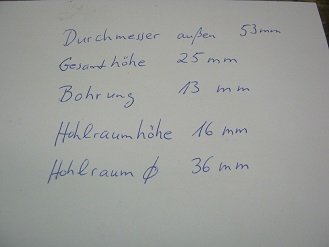 Durchmesser außen 53mm
Gesamthöhe 25 mm
Bohrung 13 mm
Hohlraumhöhe 16 mm
Hohlraum ϕ 36 mm